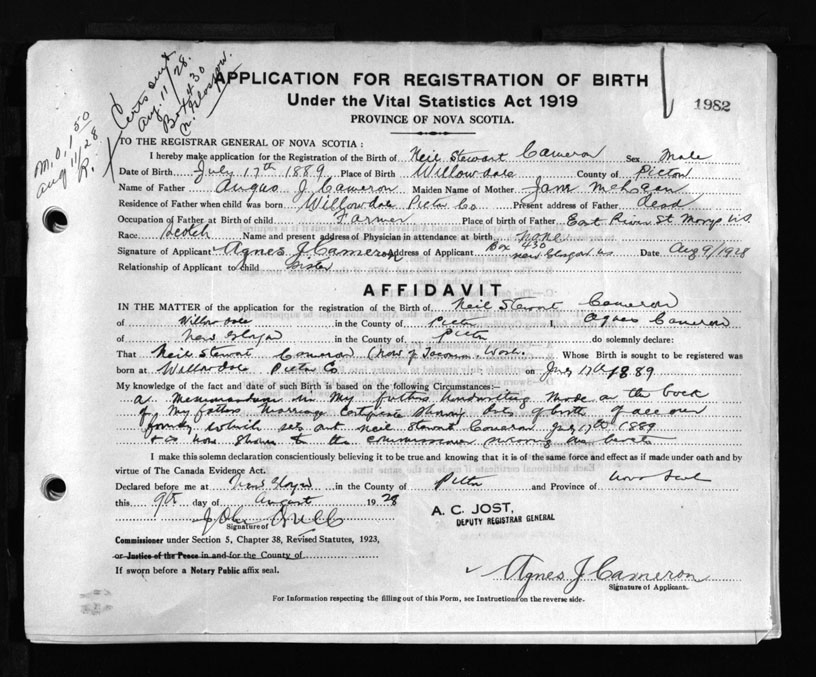 Certs sent
Aug. 11/28.
Box 430
N. Glasgow.
M.O. 1.50
Aug 11/28
R.
APPLICATION FOR REGISTRATION OF BIRTH
1982
Under the Vital Statistics Act 1919
PROVINCE OF NOVA SCOTIA.
TO THE REGISTRAR GENERAL OF NOVA SCOTIA:
I hereby make application for the Registration of the Birth of Neil Stewart Cameron Sex Male
Date of Birth July 17th 1889 Place of Birth Willowdale County of Pictou
Name of Father Angus J. Cameron Maiden Name of Mother Jane
Residence of Father when child was born Willowdale Pictou Co Present address of Father dead
Occupation of Father at Birth of child Farmer Place of birth of Father East River St Marys N.S
Race Scotch Name and present address of Physician in attendance at birth none
Signature of Applicant Agnes J Cameron Address of Applicant Box 430 New Glasgow N.S Date Aug 9/1928
Relationship of Applicant to child Sister
AFFIDAVIT
IN THE MATTER of the application for the registration of the Birth of Neil Stewart Cameron
of Willowdale in the County of Pictou I, Agnes Cameron
of New Glasgow in the County of Pictou do solemnly declare:
That Neil Stewart Cameron (now of Tacoma, Wash. Whose Birth is sought to be registered was
born at Willowdale Pictou Co on July 17th 1889
My knowledge of the fact and date of such Birth is based on the following Circumstances:—
a Memorandum in My fathers handwriting made on the back
of My fathers Marriage Certificate showing dates of birth of all our
family which sets out Neil Stewart Cameron July 17th 1889
shown to the Commissioner
I make this solemn declaration conscientiously believing it to be true and knowing that it is of the same force and effect as if made under oath and by
virtue of The Canada Evidence Act.
Declared before me at New Glasgow in the County of Pictou and Province of Nova Scotia
this 9th day of August 1928
A. C. JOST,
DEPUTY REGISTRAR GENERAL
Signature of
Commissioner under Section 5, Chapter 38, Revised Statutes, 1923,
or Justice of the Peace in and for the County of
If sworn before a Notary Public affix seal.
Agnes J Cameron
Signature of Applicant.
For Information respecting the filling out of this Form, see Instructions on the reverse side.